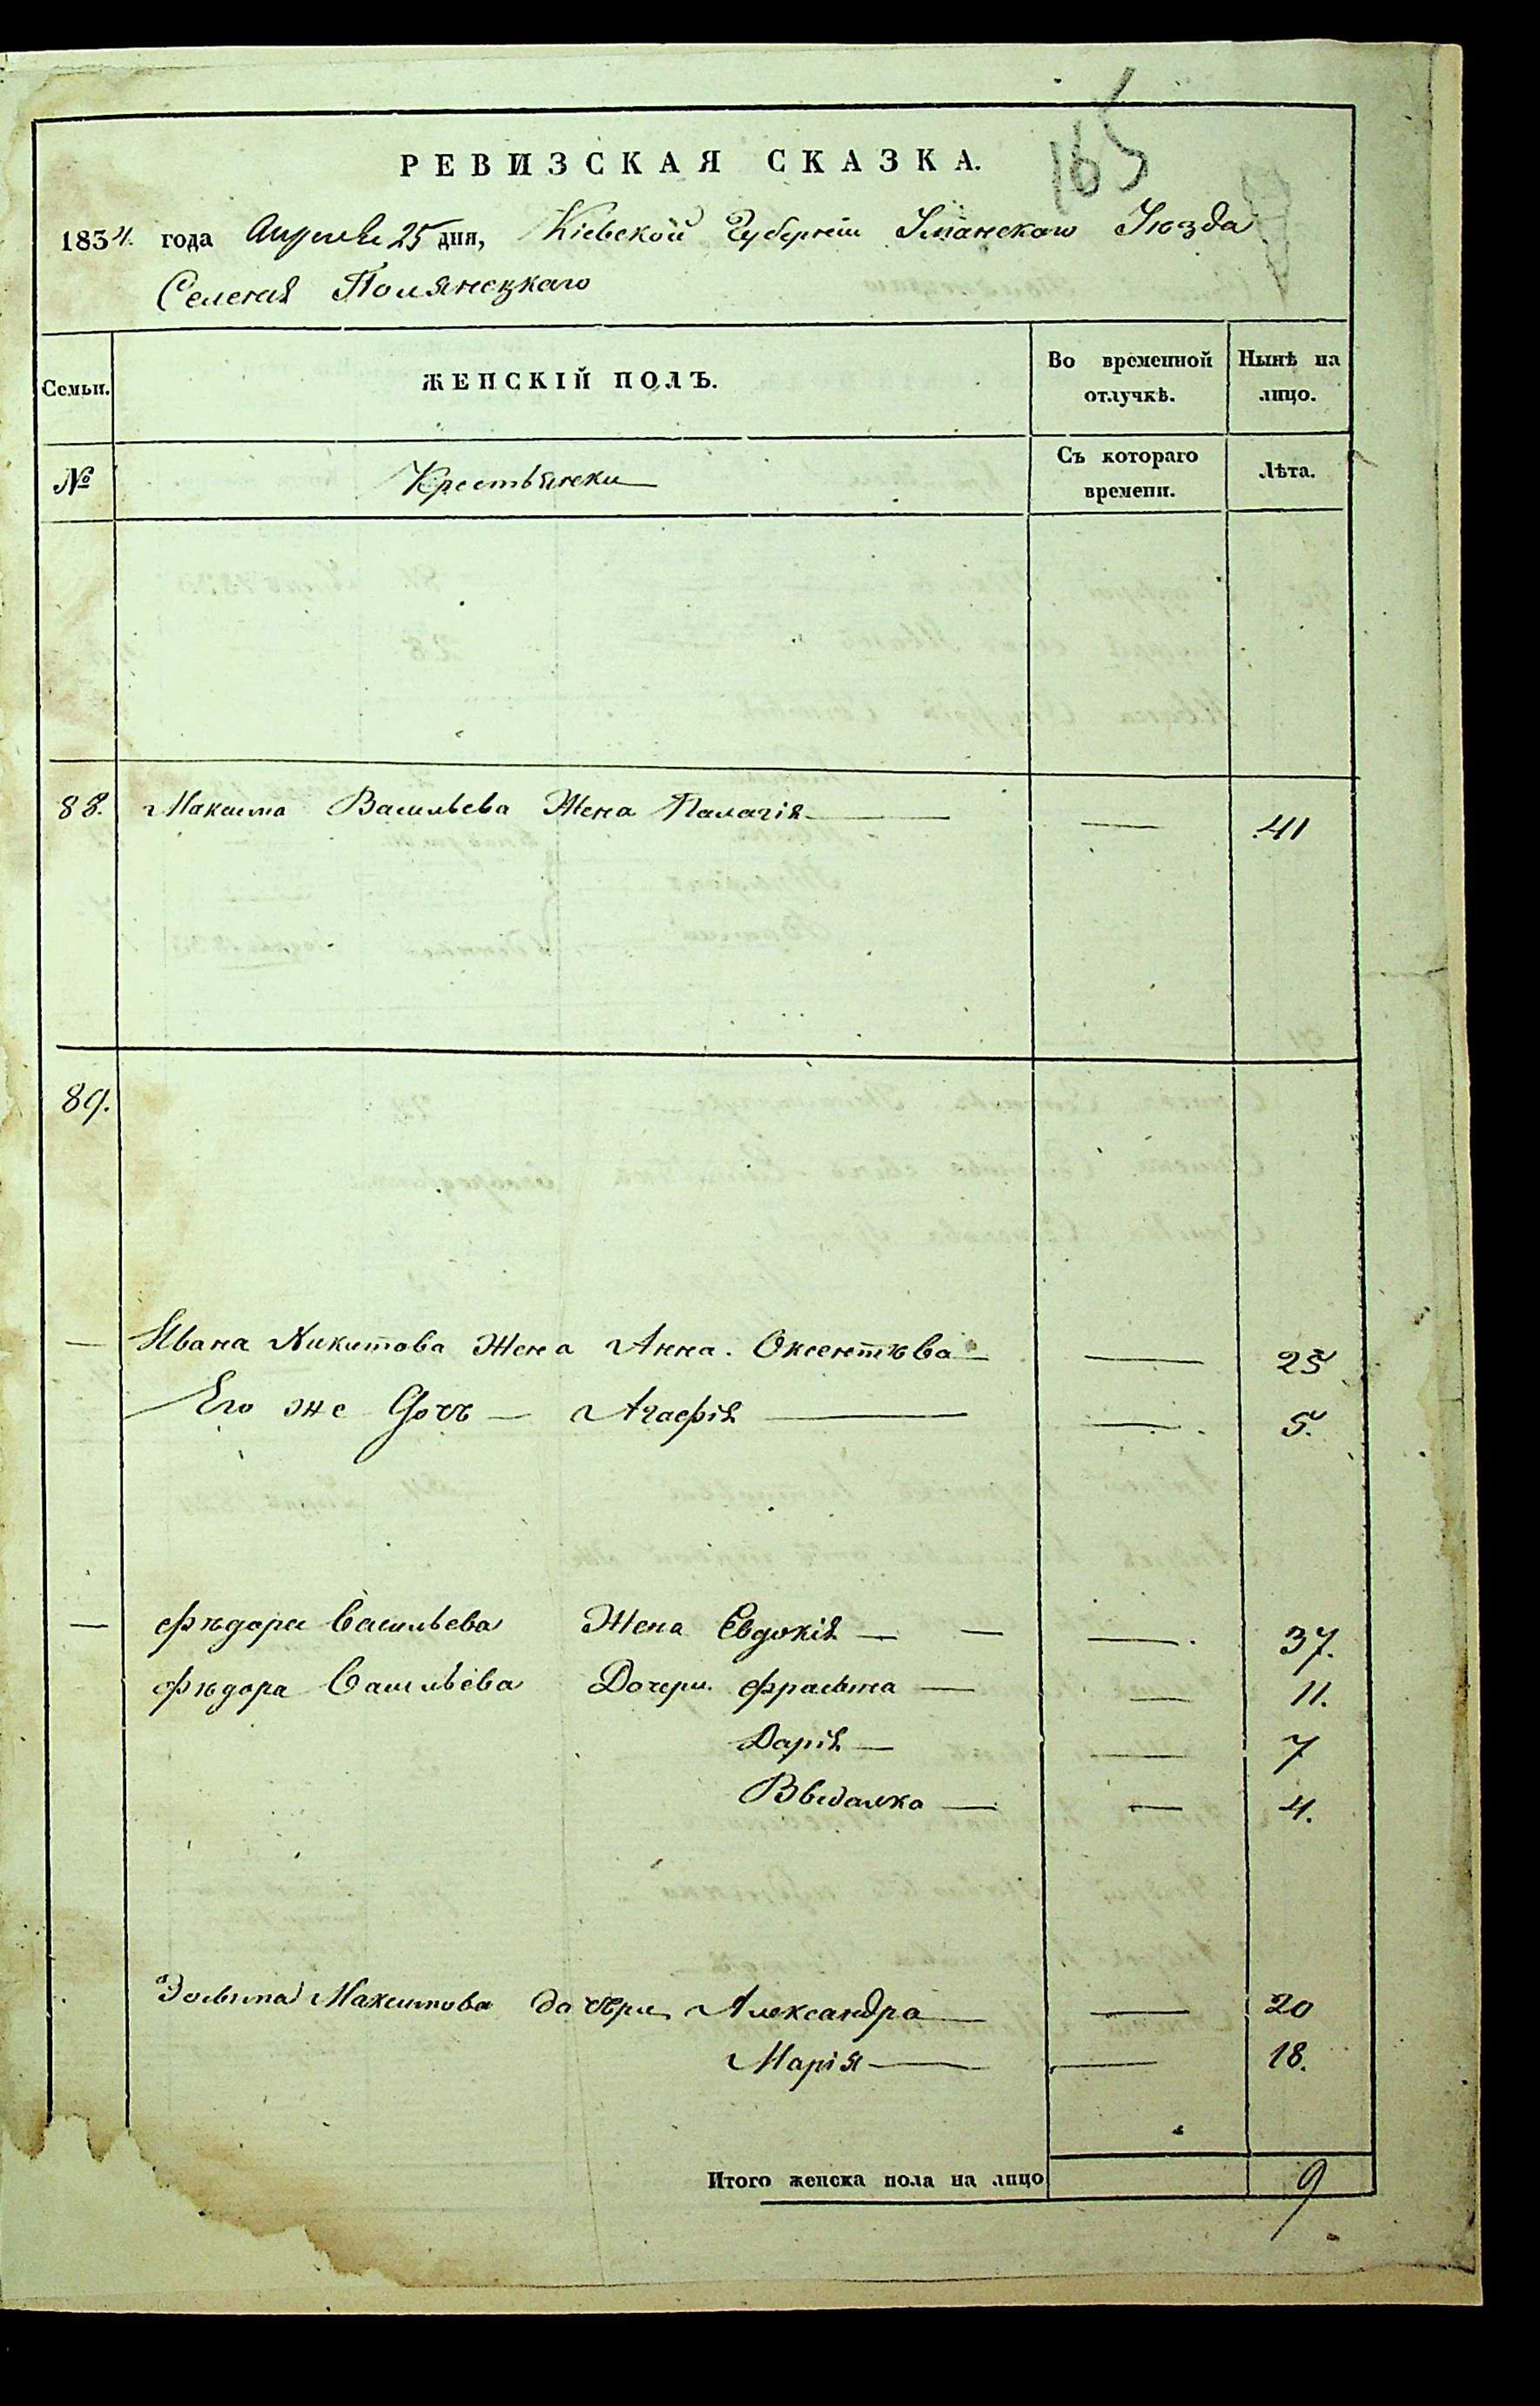 165
РЕВИЗСКАЯ СКАЗКА.
1834. года Апреля 25 дня, Кіевской Губерніи Уманскаго Уюзда
Селенія Полянецкаго
Семьи.
ЖЕНСКІЙ ПОЛЪ.
Во временной отлучкѣ.
Нынѣ на лицо.
№
Крестьянски
Съ котораго времени.
Лѣта.
88. Максима Васильева Жена Палагія — — 41
89.
— Ивана Никитова Жена Анна. Оксентѣва — — 25
Его же Дочь — Агафія — — 5.
— Фѣдора Васильева Жена Евдокія — — — 37.
Фѣдора Васильева Дочери. — — 11.
Дарія — — 7
— — 4.
Максимова дочери Александра — — 20
Марія — — 18.
Итого женска пола на лицо 9